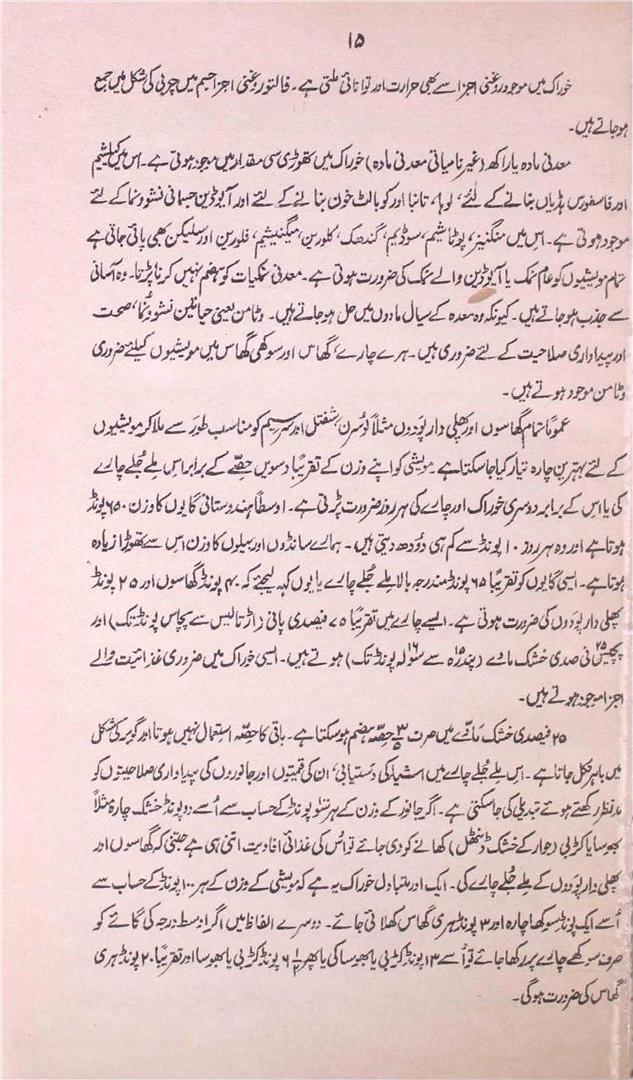 ۱۵
خوراک میں موجود روغنی اجزا سے بھی حرارت اور توانائی ملتی ہے۔ فالتو روغنی اجزا جسم میں چربی کی شکل میں جمع
ہو جاتے ہیں۔
معدنی مادہ یا راکھ (غیر نامیاتی معدنی مادہ) خوراک میں تھوڑی سی مقدار میں موجود ہوتی ہے۔ اس میں کیلشیم
اور فاسفورس ہڈیاں بنانے کے لئے، لوہا، تانبا اور کوبالٹ خون بنانے کے لئے اور آیوڈین جسمانی نشوونما کے لئے
موجود ہوتی ہے۔ اس میں منگنیز، پوٹاشیم، سوڈیم، گندھک، کلورین، میگنیشیم، فلورین اور سلیکن بھی پائی جاتی ہے
تمام مویشیوں کو عام نمک یا آیوڈین والے نمک کی ضرورت ہوتی ہے۔ معدنی نمکیات کو ہضم نہیں کرنا پڑتا۔ وہ آسانی
سے جذب ہو جاتے ہیں۔ کیونکہ وہ معدہ کے سیال مادوں میں حل ہو جاتے ہیں۔ وٹامن یعنی حیاتین نشوونما، صحت
اور پیداواری صلاحیت کے لئے ضروری ہیں۔ ہرے چارے، گھاس اور سوکھی گھاس میں مویشیوں کیلئے ضروری
وٹامن موجود ہوتے ہیں۔
عموماً تمام گھاسوں اور پھلی دار پودوں مثلاً لوسرن، شفتل اور برسیم کو مناسب طور سے ملا کر مویشیوں
کے لئے بہترین چارہ تیار کیا جا سکتا ہے۔ مویشی کو اپنے وزن کے تقریباً دسویں حصے کے برابر اس ملے جُلے چارے
کی یا اس کے برابر دوسری خوراک اور چارے کی ہر روز ضرورت پڑتی ہے۔ اوسطاً ہندوستانی گایوں کا وزن ۶۵۰ پونڈ
ہوتا ہے اور وہ ہر روز ۱۰ پونڈ سے کم ہی دودھ دیتی ہیں۔ ہمارے سانڈوں اور بیلوں کا وزن اس سے تھوڑا زیادہ
ہوتا ہے۔ ایسی گایوں کو تقریباً ۶۵ پونڈ مندرجہ بالا ملے جُلے چارے یا یوں کہہ لیجئے کہ ۴۰ پونڈ گھاسوں اور ۲۵ پونڈ
پھلی دار پودوں کی ضرورت ہوتی ہے۔ ایسے چارے میں تقریباً ۷۵ فیصدی پانی (اڑتالیس سے پچاس پونڈ تک) اور
پچیس ۲۵ فی صدی خشک مادے (پندرہ ۱۵ سے سولہ ۱۶ پونڈ تک) ہوتے ہیں۔ ایسی خوراک میں ضروری غذائیت والے
اجزا موجود ہوتے ہیں۔
۲۵ فیصدی خشک مادّے میں صرف ۳/۵ حصّہ ہضم ہو سکتا ہے۔ باقی کا حصّہ استعمال نہیں ہوتا اور گوبر کی شکل
میں باہر نکل جاتا ہے۔ اس ملے جُلے چارے میں اشیا کی دستیابی، ان کی قیمتوں اور جانوروں کی پیداواری صلاحیتوں کو
مدِنظر رکھتے ہوئے تبدیلی کی جا سکتی ہے۔ اگر جانور کے وزن کے ہر سو پونڈ کے حساب سے اُسے دو پونڈ خشک چارہ مثلاً
بھوسا یا کڑبی (جوار کے خشک ڈنٹھل) کھانے کو دی جائے تو اُس کی غذائی افادیت اتنی ہی ہے جتنی کہ گھاسوں اور
پھلی دار پودوں کے ملے جُلے چارے کی۔ ایک اور متبادل خوراک یہ ہے کہ مویشی کے وزن کے ہر ۱۰۰ پونڈ کے حساب سے
اُسے ایک پونڈ سوکھا چارہ اور ۳ پونڈ ہری گھاس کھلائی جائے۔ دوسرے الفاظ میں اگر اوسط درجہ کی گائے کو
صرف سوکھے چارے پر رکھا جائے تو اُسے ۱۳ پونڈ کڑبی یا بھوسا کی یا پھر ۶ ۱/۲ پونڈ کڑبی یا بھوسا اور تقریباً ۲۰ پونڈ ہری
گھاس کی ضرورت ہوگی۔